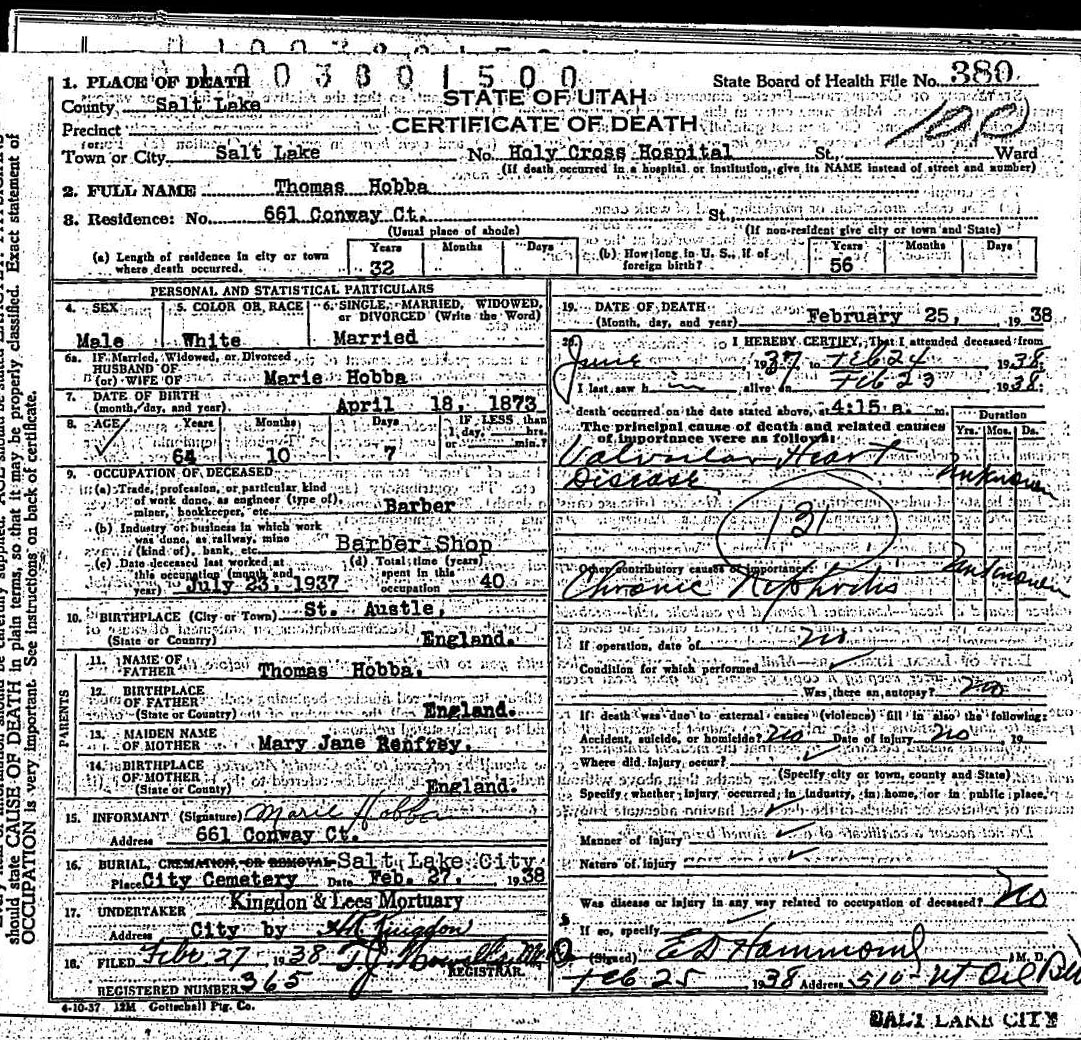 1003801500
1. PLACE OF DEATH
State Board of Health File No. 380
County Salt Lake
STATE OF UTAH
Precinct
CERTIFICATE OF DEATH
100
Town or City Salt Lake No. Holy Cross Hospital St., Ward
(If death occurred in a hospital or institution, give its NAME instead of street and number)
2. FULL NAME Thomas Hobba
3. Residence: No. 661 Conway Ct. St.,
(Usual place of abode) (If non-resident give city or town and State)
(a) Length of residence in city or town where death occurred. Years 32 Months Days
(b) How long in U. S., if of foreign birth? Years 56 Months Days
PERSONAL AND STATISTICAL PARTICULARS
4. SEX Male
5. COLOR OR RACE White
6. SINGLE, MARRIED, WIDOWED, or DIVORCED (Write the Word) Married
6a. If Married, Widowed, or Divorced
HUSBAND OF
(or) WIFE OF Marie Hobba
7. DATE OF BIRTH
(month, day, and year) April 18, 1873
8. AGE Years 64 Months 10 Days 7 IF LESS than 1 day, hrs. or min.?
9. OCCUPATION OF DECEASED
(a) Trade, profession, or particular kind
of work done, as engineer (type of),
miner, bookkeeper, etc. Barber
(b) Industry or business in which work
was done, as railway, mine
(kind of), bank, etc. Barber Shop
(c) Date deceased last worked at
this occupation (month and
year) July 23, 1937
(d) Total time (years)
spent in this
occupation 40
10. BIRTHPLACE (City or Town) St. Austle,
(State or Country) England.
PARENTS
11. NAME OF
FATHER Thomas Hobba.
12. BIRTHPLACE
OF FATHER
(State or Country) England.
13. MAIDEN NAME
OF MOTHER Mary Jane Renfrey.
14. BIRTHPLACE
OF MOTHER
(State or Country) England.
15. INFORMANT (Signature) Marie Hobba
Address 661 Conway Ct.
16. BURIAL, CREMATION, OR REMOVAL Salt Lake City
Place City Cemetery Date Feb. 27, 1938
17. UNDERTAKER Kingdon & Lees Mortuary
Address City by Kingdon
18. FILED Feb 27 1938 T.J. Howells M.D.
REGISTRAR.
REGISTERED NUMBER 365
4-10-37 12M Gottschall Ptg. Co.
19. DATE OF DEATH
(Month, day, and year) February 25, 1938
20. I HEREBY CERTIFY, That I attended deceased from
June 1937 to Feb 24 1938.
I last saw h im alive on Feb 23 1938.
death occurred on the date stated above, at 4:15 a. m.
The principal cause of death and related causes
of importance were as follows:
Duration
Yrs. Mos. Ds.
Valvular Heart
Disease Unknown
131
Other contributory causes of importance:
Chronic Nephritis Unknown
If operation, date of no
Condition for which performed
Was there an autopsy? no
If death was due to external causes (violence) fill in also the following:
Accident, suicide, or homicide? no Date of injury no, 19
Where did injury occur?
(Specify city or town, county and State)
Specify whether injury occurred in industry, in home, or in public place.
Manner of injury
Nature of injury
Was disease or injury in any way related to occupation of deceased? No
If so, specify
(Signed) E D Hammond, M. D.
Feb 25 1938 Address 510 Ut Oil
SALT LAKE CITY
should state CAUSE OF DEATH in plain terms, so that it may be properly classified. Exact statement of
OCCUPATION is very important. See instructions on back of certificate.